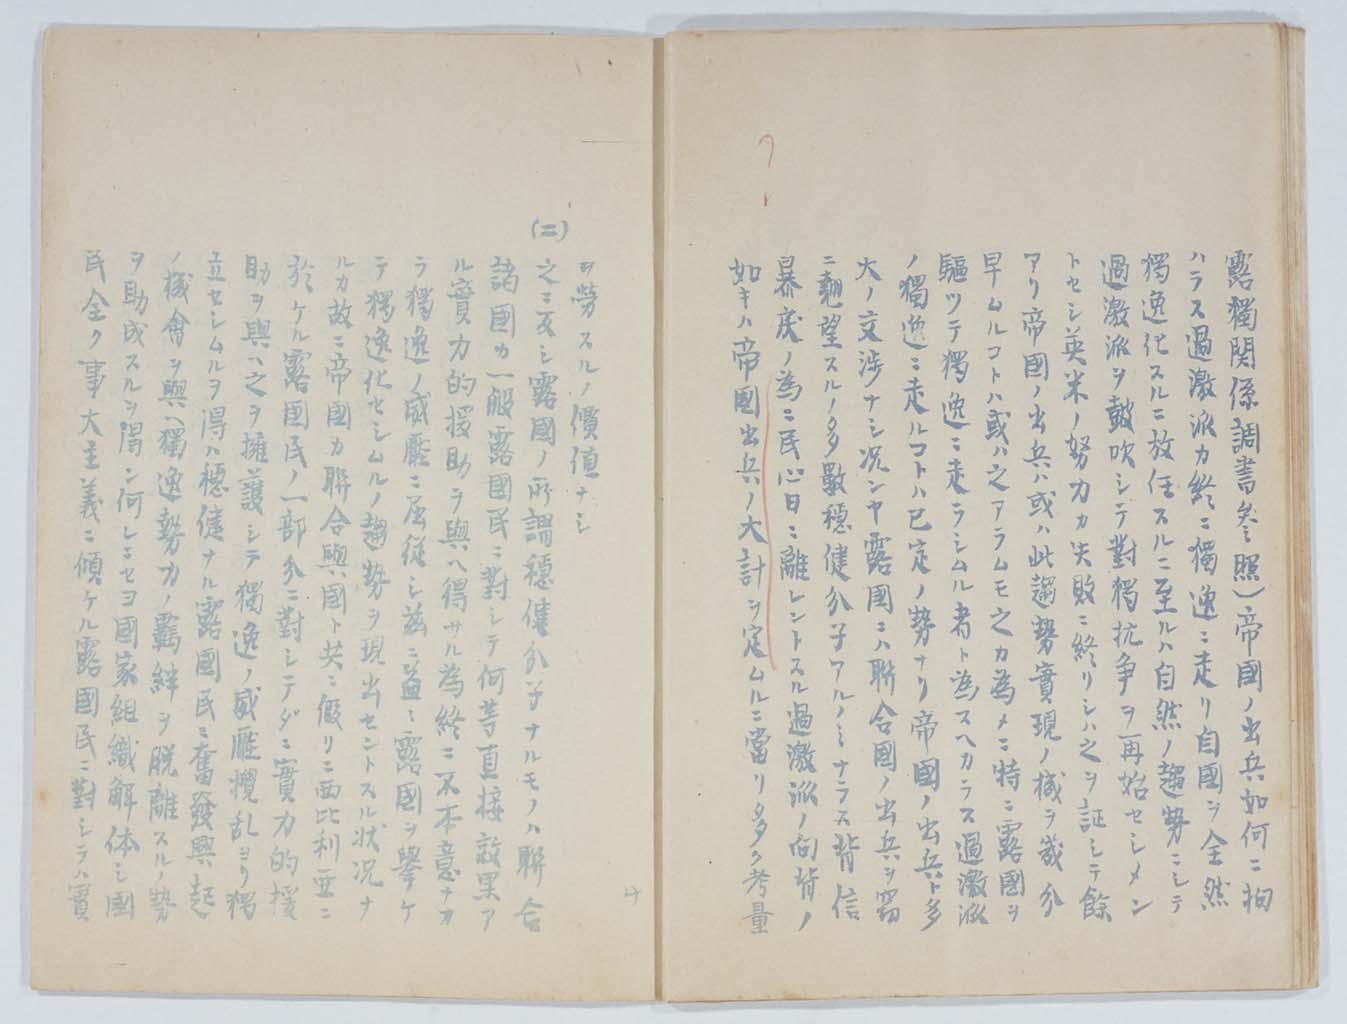 露獨関係調書参照)帝國ノ出兵如何ニ拘
ハラス過激派カ終ニ獨逸ニ走リ自國ヲ全然
獨逸化スルニ放任スルニ至ルハ自然ノ趨勢ニシテ
過激派ヲ鼓吹シテ對獨抗争ヲ再始セシメン
トセシ英米ノ努力カ失敗ニ終リシハ之ヲ証シテ餘
アリ帝國ノ出兵ハ或ハ此趨勢實現ノ機ヲ幾分
早ムルコトハ或ハ之アラムモ之カ為メニ特ニ露國ヲ
驅ツテ獨逸ニ走ラシムル者ト為スヘカラス過激派
ノ獨逸ニ走ルコトハ已定ノ勢ナリ帝國ノ出兵ト多
大ノ交渉ナシ况ンヤ露國ニハ聯合國ノ出兵ヲ窃
ニ翹望スルノ多數穏健分子アルノミナラス背信
暴戻ノ為ニ民心日ニ離レントスル過激派ノ向背ノ
如キハ帝國出兵ノ大計ヲ定ムルニ當リ多ク考量
ヲ勞スルノ價値ナシ
(二)
之ニ反シ露國ノ所謂穏健分子ナルモノハ聯合
諸國カ一般露國民ニ對シテ何等直接効果ア
ル實力的援助ヲ與ヘ得サル為終ニ不本意ナカ
ラ獨逸ノ威壓ニ屈從シ茲ニ益々露國ヲ擧ケ
テ獨逸化セシムルノ趨勢ヲ現出セントスル状况ナ
ルカ故ニ帝國カ聯合與國ト共ニ假リニ西比利亜ニ
於ケル露國民ノ一部分ニ對シテダニ實力的援
助ヲ與ヘ之ヲ擁護シテ獨逸ノ威壓攪乱ヨリ獨
立セシムルヲ得ハ穏健ナル露國民ニ奮發興起
ノ機會ヲ與ヘ獨逸勢力ノ覊絆ヲ脱離スルノ勢
ヲ助成スルヲ得ン何レニセヨ國家組織解体シ國
民全ク事大主義ニ傾ケル露國民ニ對シテハ實